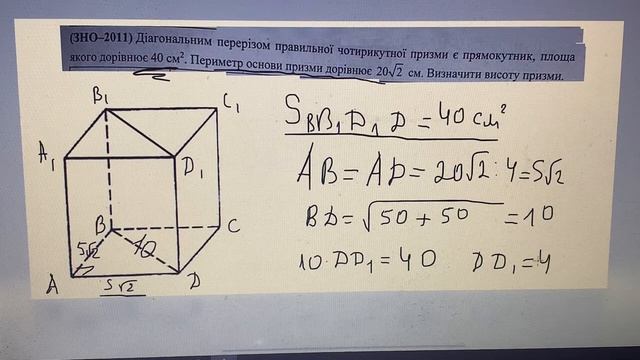 (ЗНО–2011) Діагональним перерізом правильної чотирикутної призми є прямокутник, площа
якого дорівнює 40 см². Периметр основи призми дорівнює 20√2 см. Визначити висоту призми.
S BB₁D₁D = 40 см²
AB = AD = 20√2 : 4 = 5√2
BD = √50 + 50 = 10
10 · DD₁ = 40 DD₁ = 4
B₁ C₁
A₁ D₁
B C
5√2 10
A D
5√2